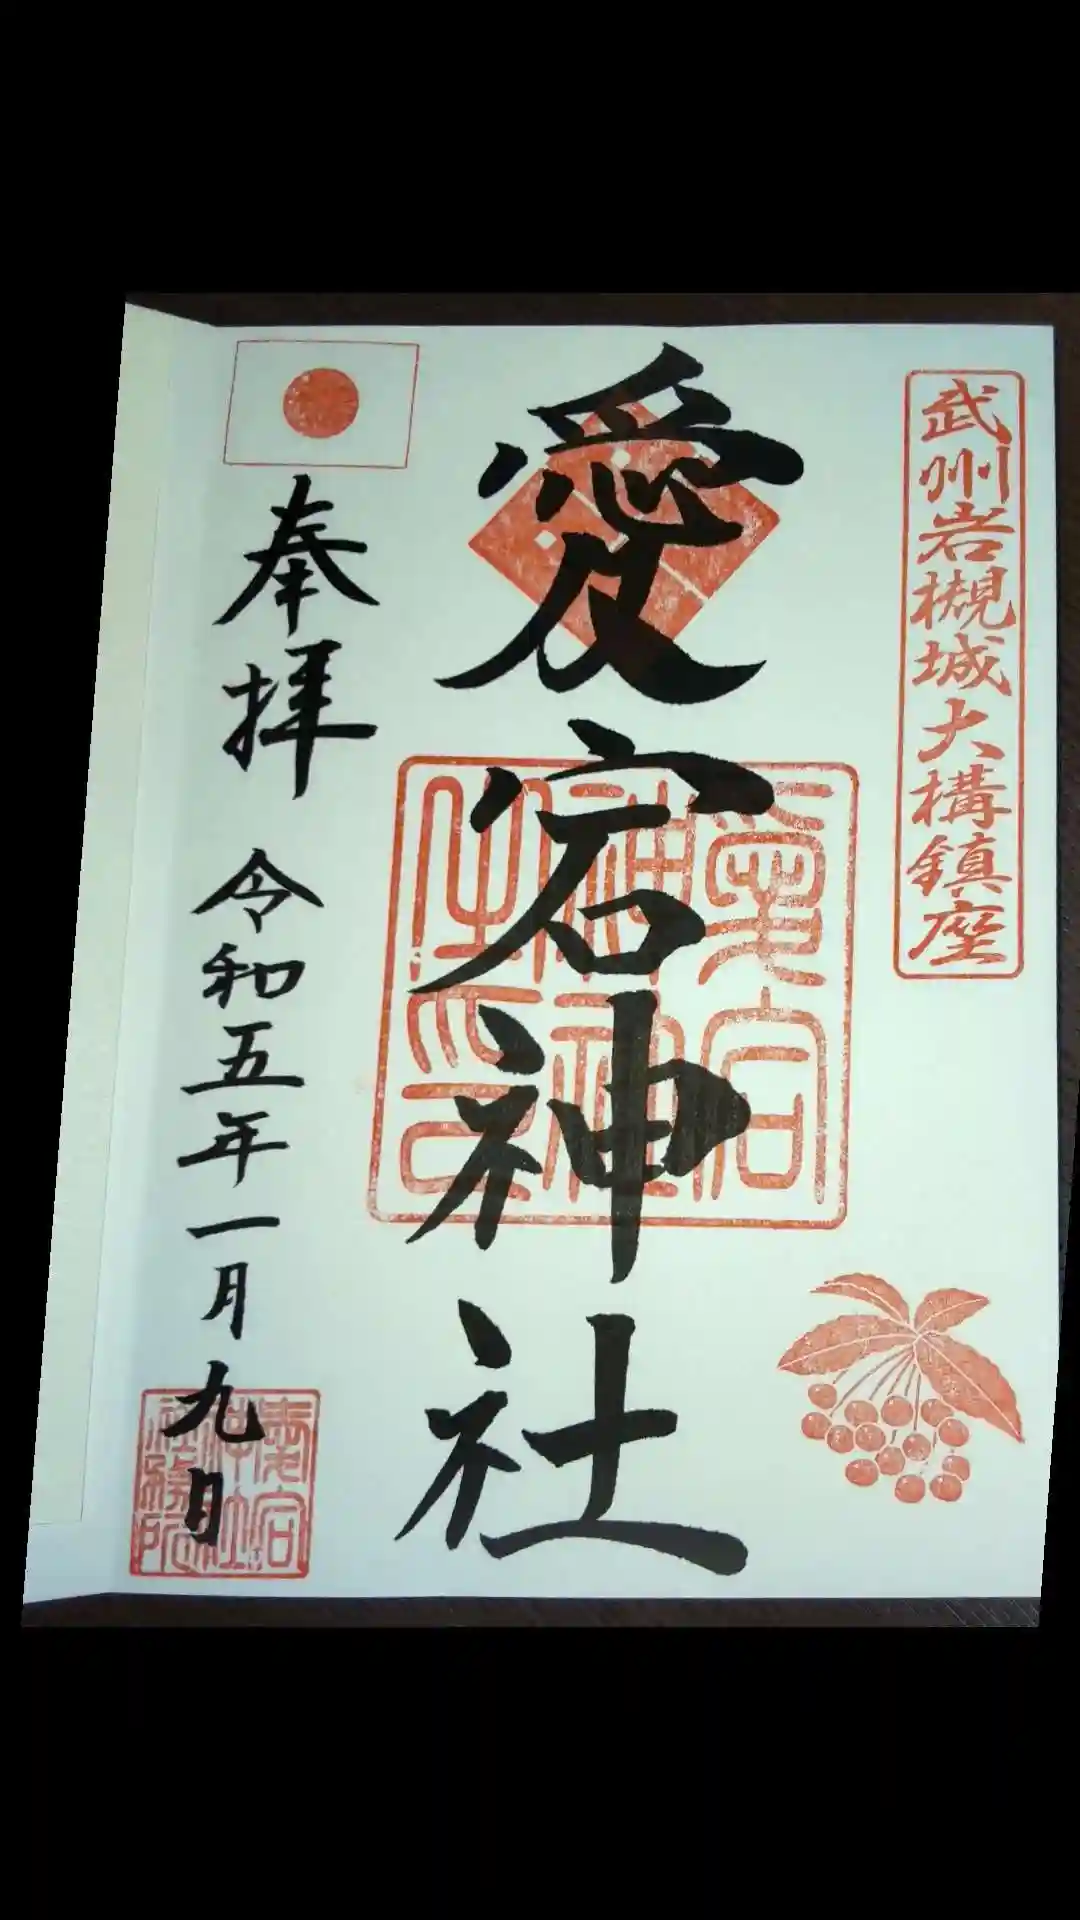 武州岩槻城大構鎮座
愛宕神社
奉拝
令和五年一月九日
愛宕
神社
社務所